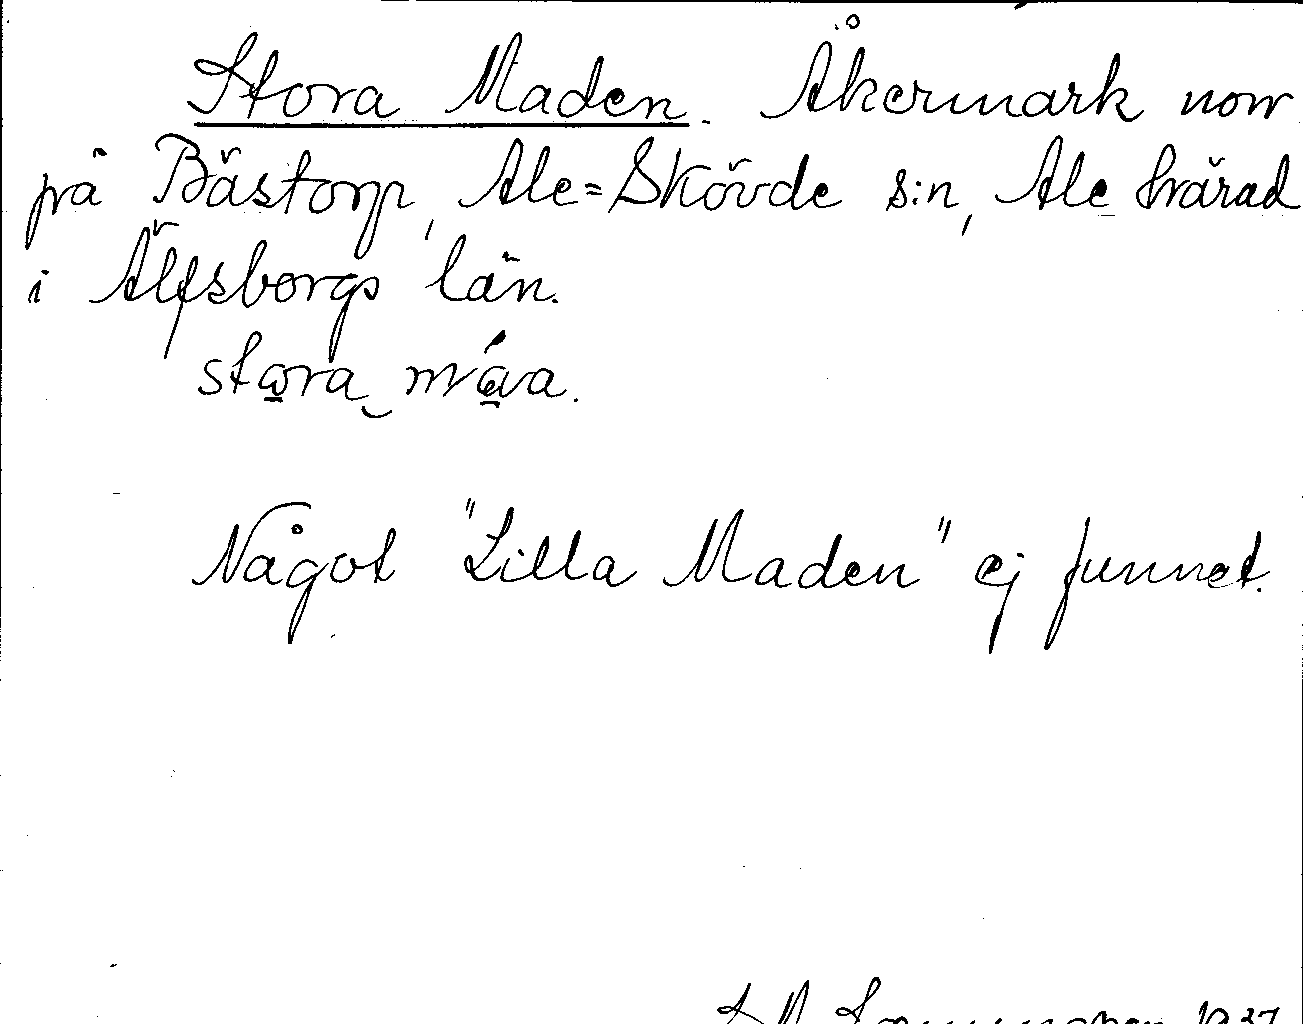 Stora Maden. Åkermark norr
på Bästorp, Ale=Skövde s:n, Ale härad
i Älfsborgs län.
stora máva.
Något "Lilla Maden" ej funnet.
1937